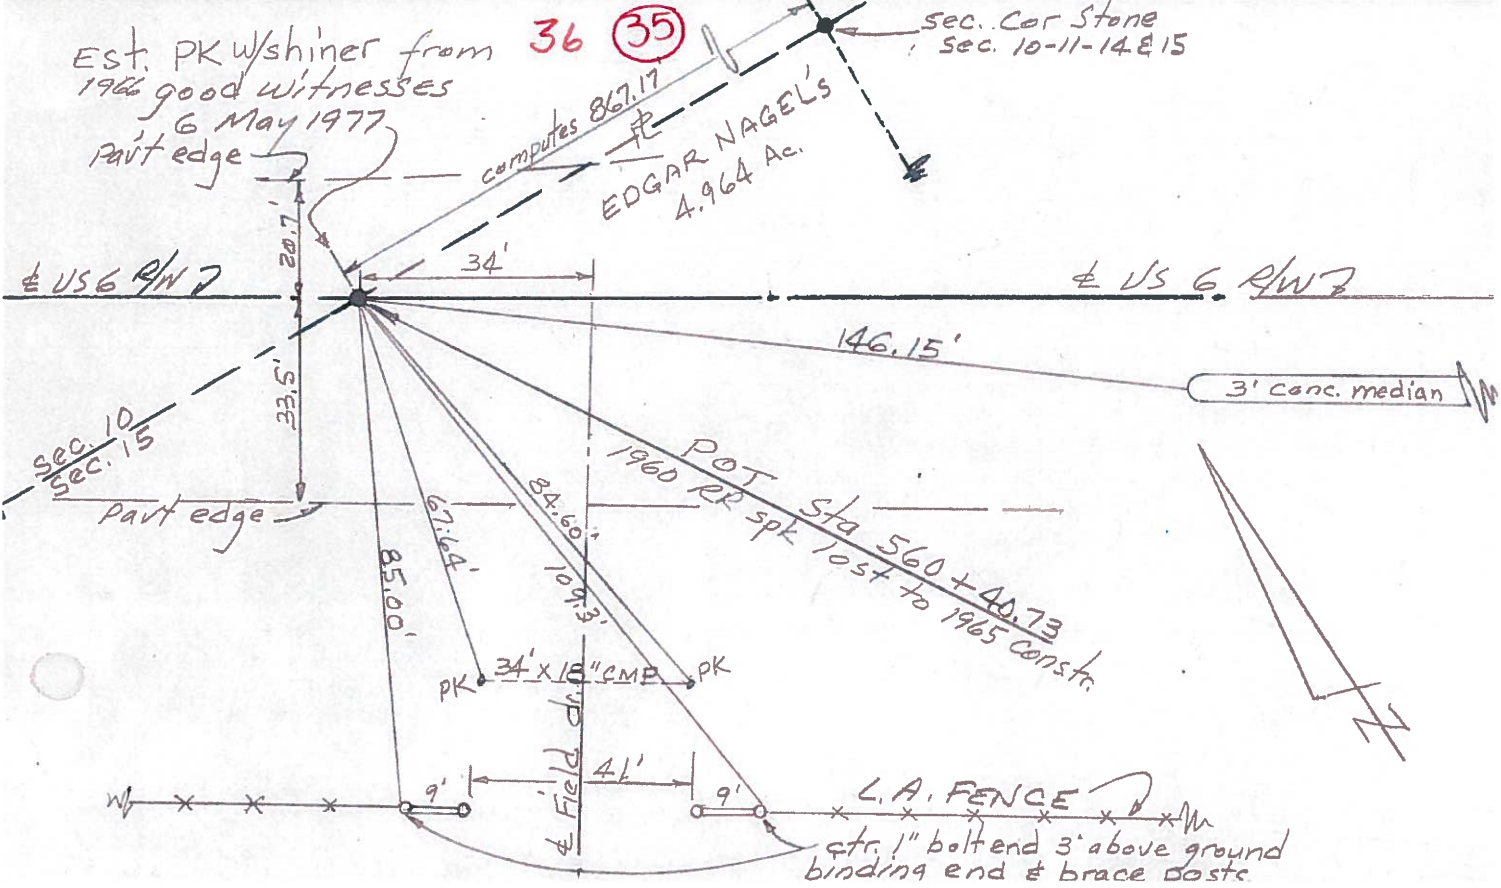 Est. PK W/shiner from
1966 good witnesses
6 May 1977
36 35
sec. Cor Stone
sec. 10-11-14 & 15
Pav't edge
computes 867.17'
℄
EDGAR NAGEL'S
4.964 Ac.
20.7'
34'
℄ US 6 R/W
℄ US 6 R/W
146.15'
3' conc. median
33.5'
Sec. 10
Sec. 15
Pav't edge
POT Sta 560 + 40.73
1960 RR spk lost to 1965 Constr.
85.00'
67.64'
84.60'
109.3'
PK 34' x 18" CMP PK
℄ Field dr.
9' 41' 9'
L.A. FENCE
ctr. 1" bolt end 3' above ground
binding end & brace posts
N